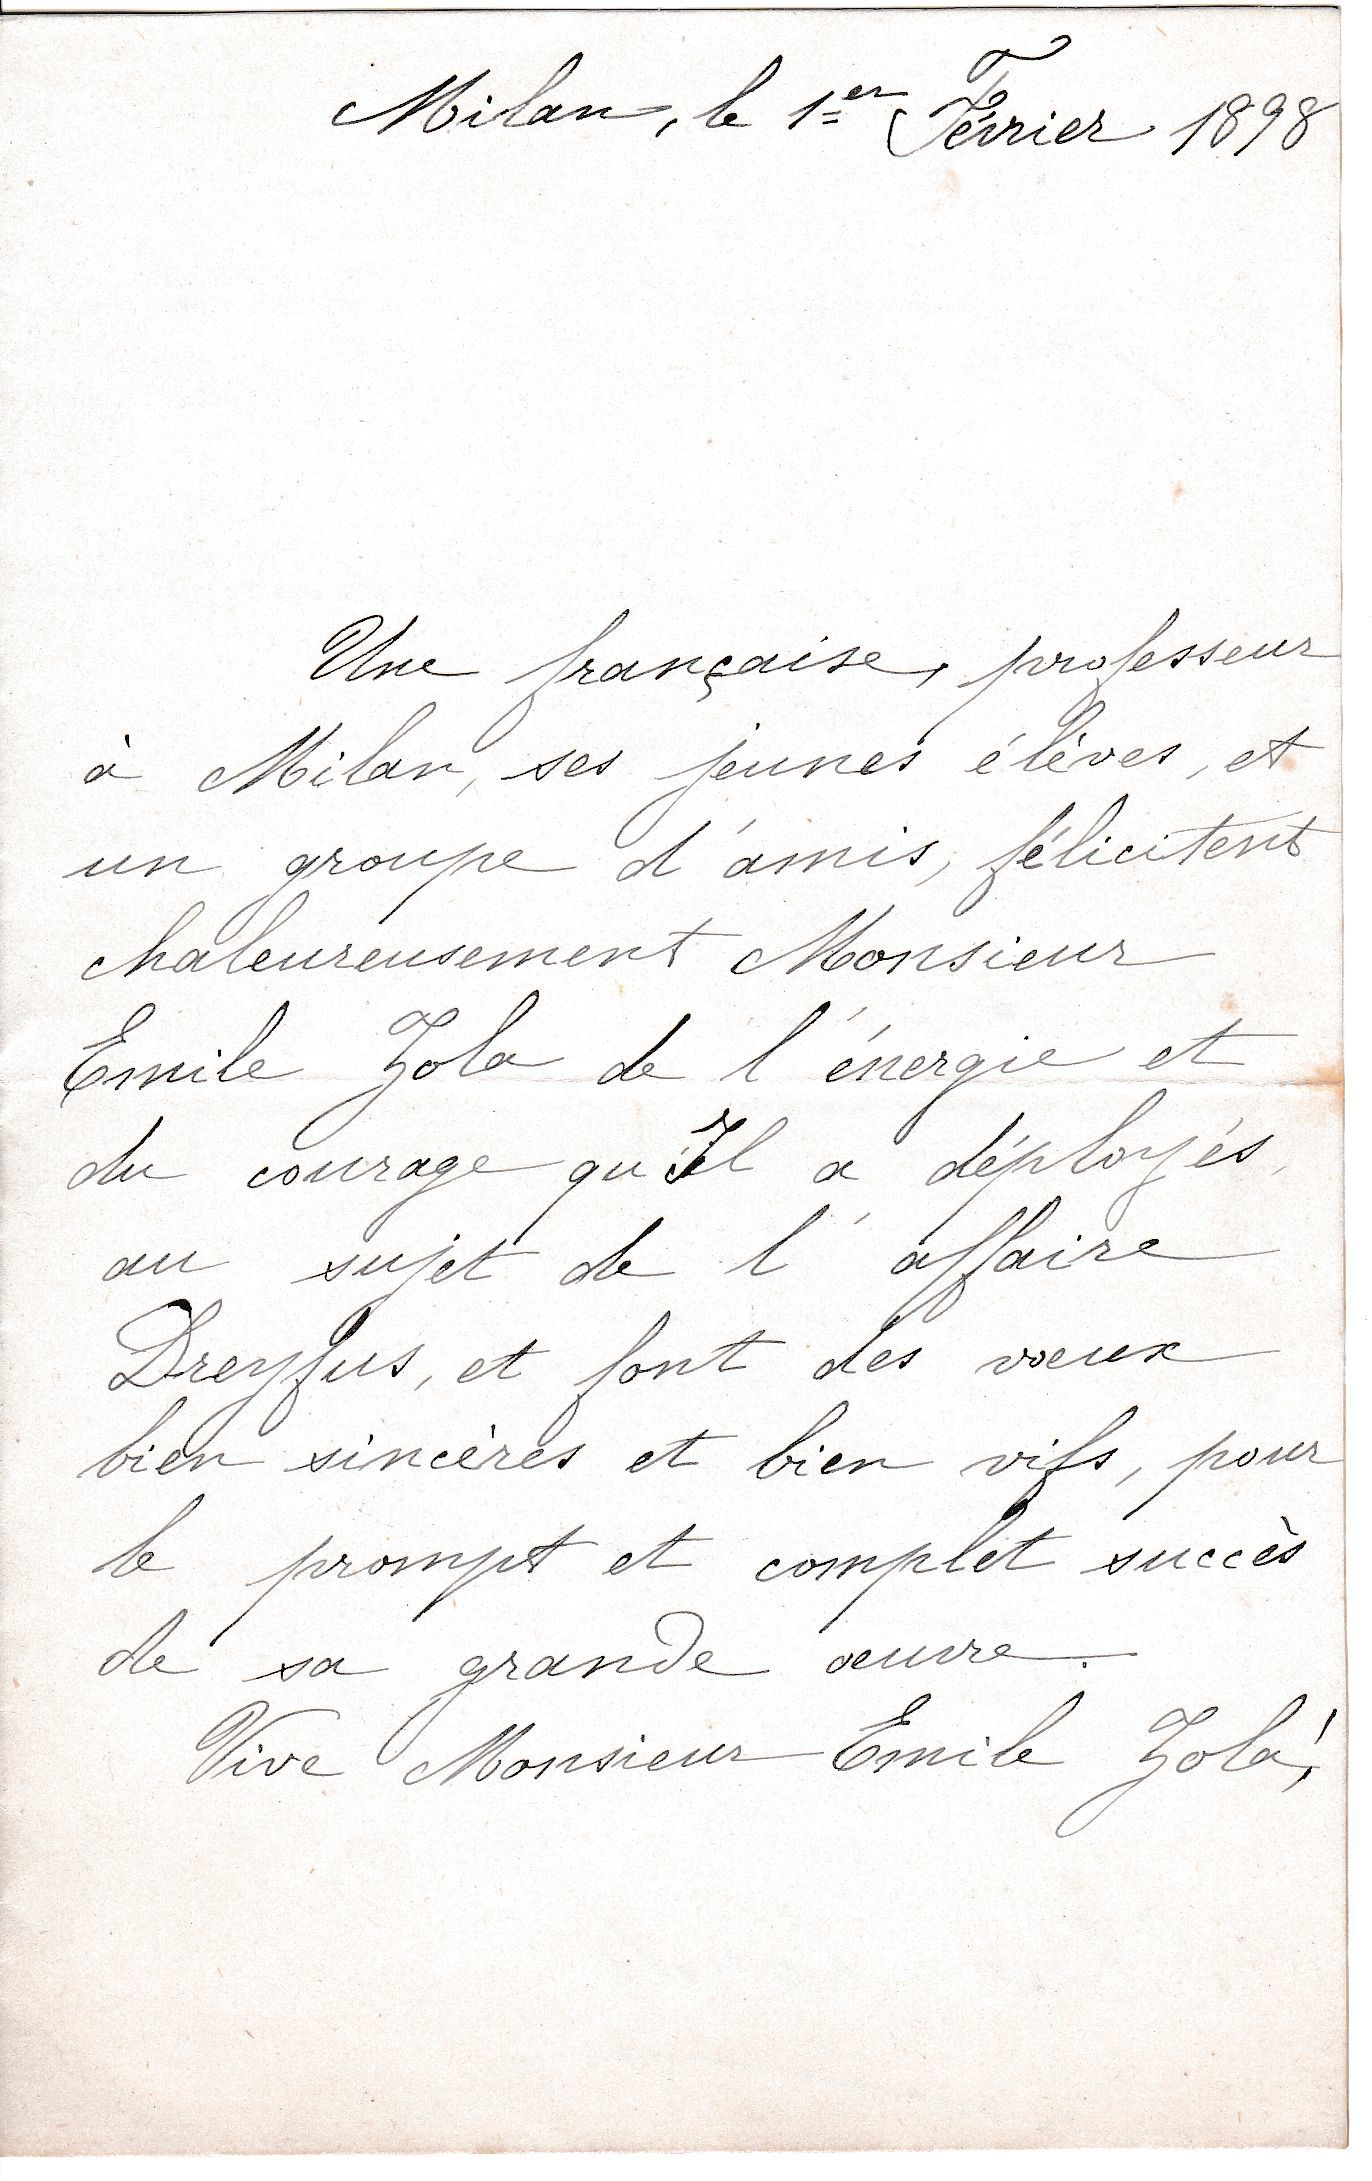 Milan, le 1er Février 1898
Une française, professeur
à Milan, ses jeunes élèves, et
un groupe d'amis, félicitent
chaleureusement Monsieur
Emile Zola de l'énergie et
du courage qu'Il a déployés,
au sujet de l'affaire
Dreyfus, et font des vœux
bien sincères et bien vifs, pour
le prompt et complet succès
de sa grande œuvre.
Vive Monsieur Emile Zola!